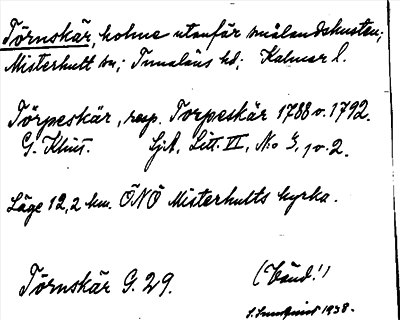 Törnskär, holme utanför smålandskusten;
Misterhult sn; Tunaläns hd; Kalmar l.
Törpeskär, resp. Torpeskär 1788 o. 1792.
G. Klint. Sjk. Litt. II, No 3, 1 o 2.
Läge 12,2 km. ÖNÖ Misterhults kyrka.
Törnskär G. 29. (Känd!)
1938.